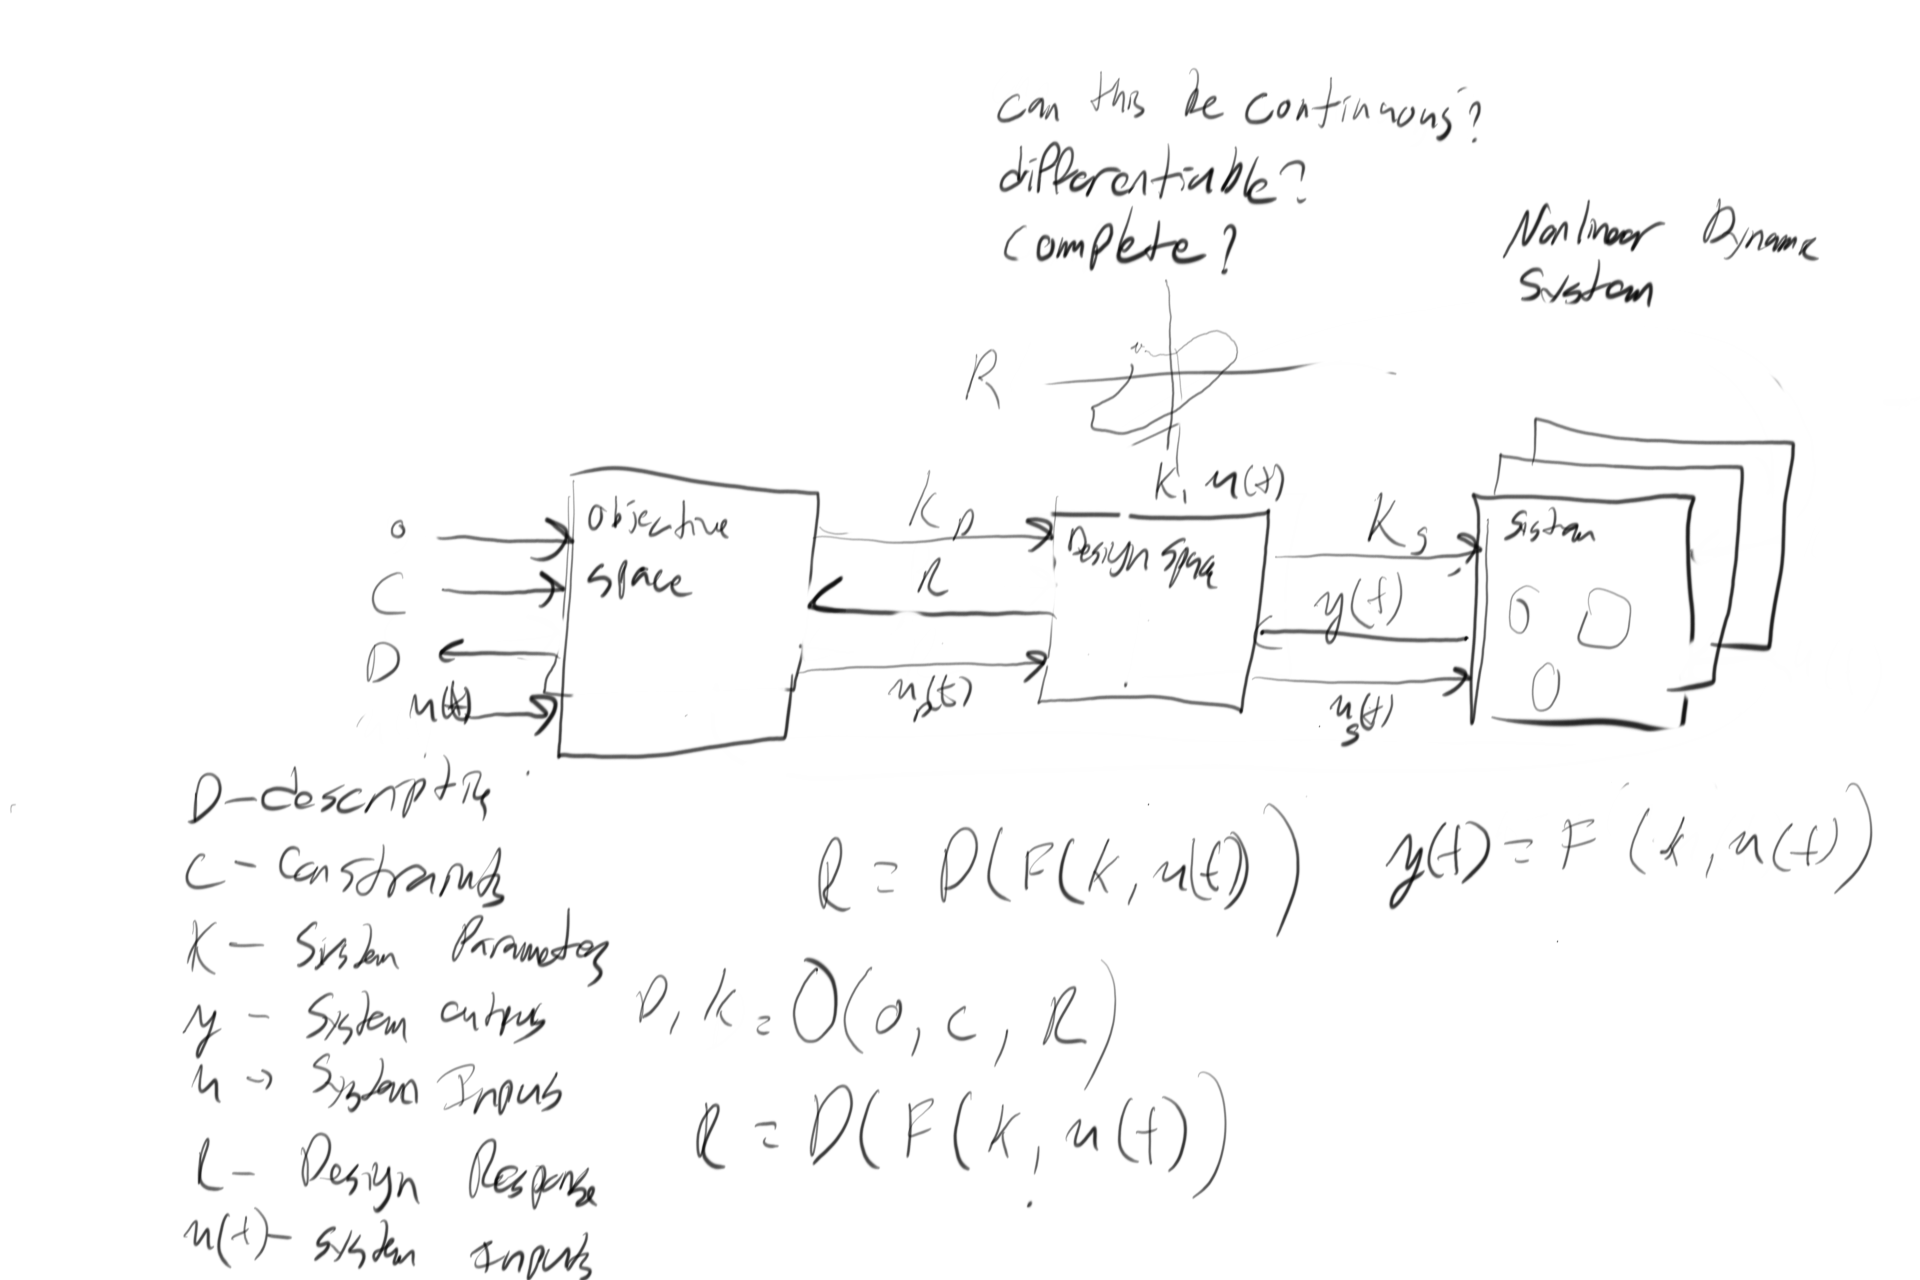 can this be continuous?
differentiable?
complete?
Nonlinear Dynamic
System
R
K, u(t)
objective
space
o
C
D
u(t)
K_D
R
u_D(t)
Design space
K_S
y(t)
u_S(t)
Sistem
D - descriptive
C - Constraints
K - System Parameters
y - System outputs
u -> System Inputs
R - Design Response
u(t) - system inputs
R = D(F(K, u(t)))
y(t) = F(k, u(t))
D, K = O(o, c, R)
R = D(F(K, u(t)))